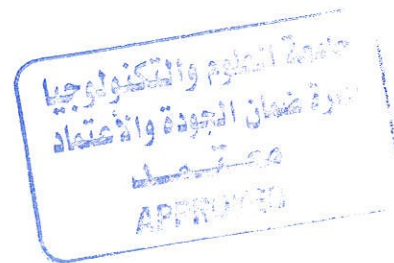 جامعة العلوم والتكنولوجيا
ضمان الجودة والأعتماد
معتمد
APPROVED